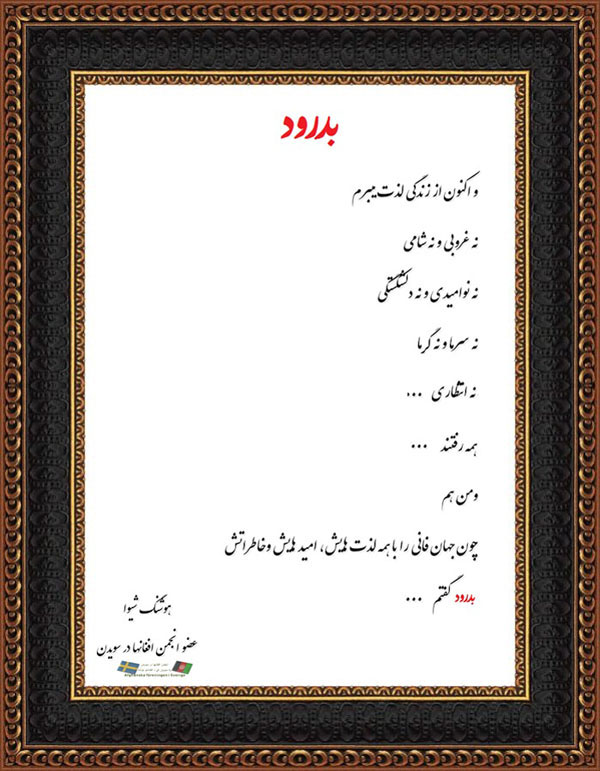 بدرود
و اکنون از زندگی لذت میبرم
نه غروبی و نه شامی
نه نوامیدی و نه دلشکستگی
نه سرما و نه گرما
نه انتظاری ...
همه رفتند ...
ومن هم
چون جهان فانی را با همه لذت هایش، امید هایش وخاطراتش
بدرود گفتم ...
هوشنگ شیوا
عضو انجمن افغانها در سویدن